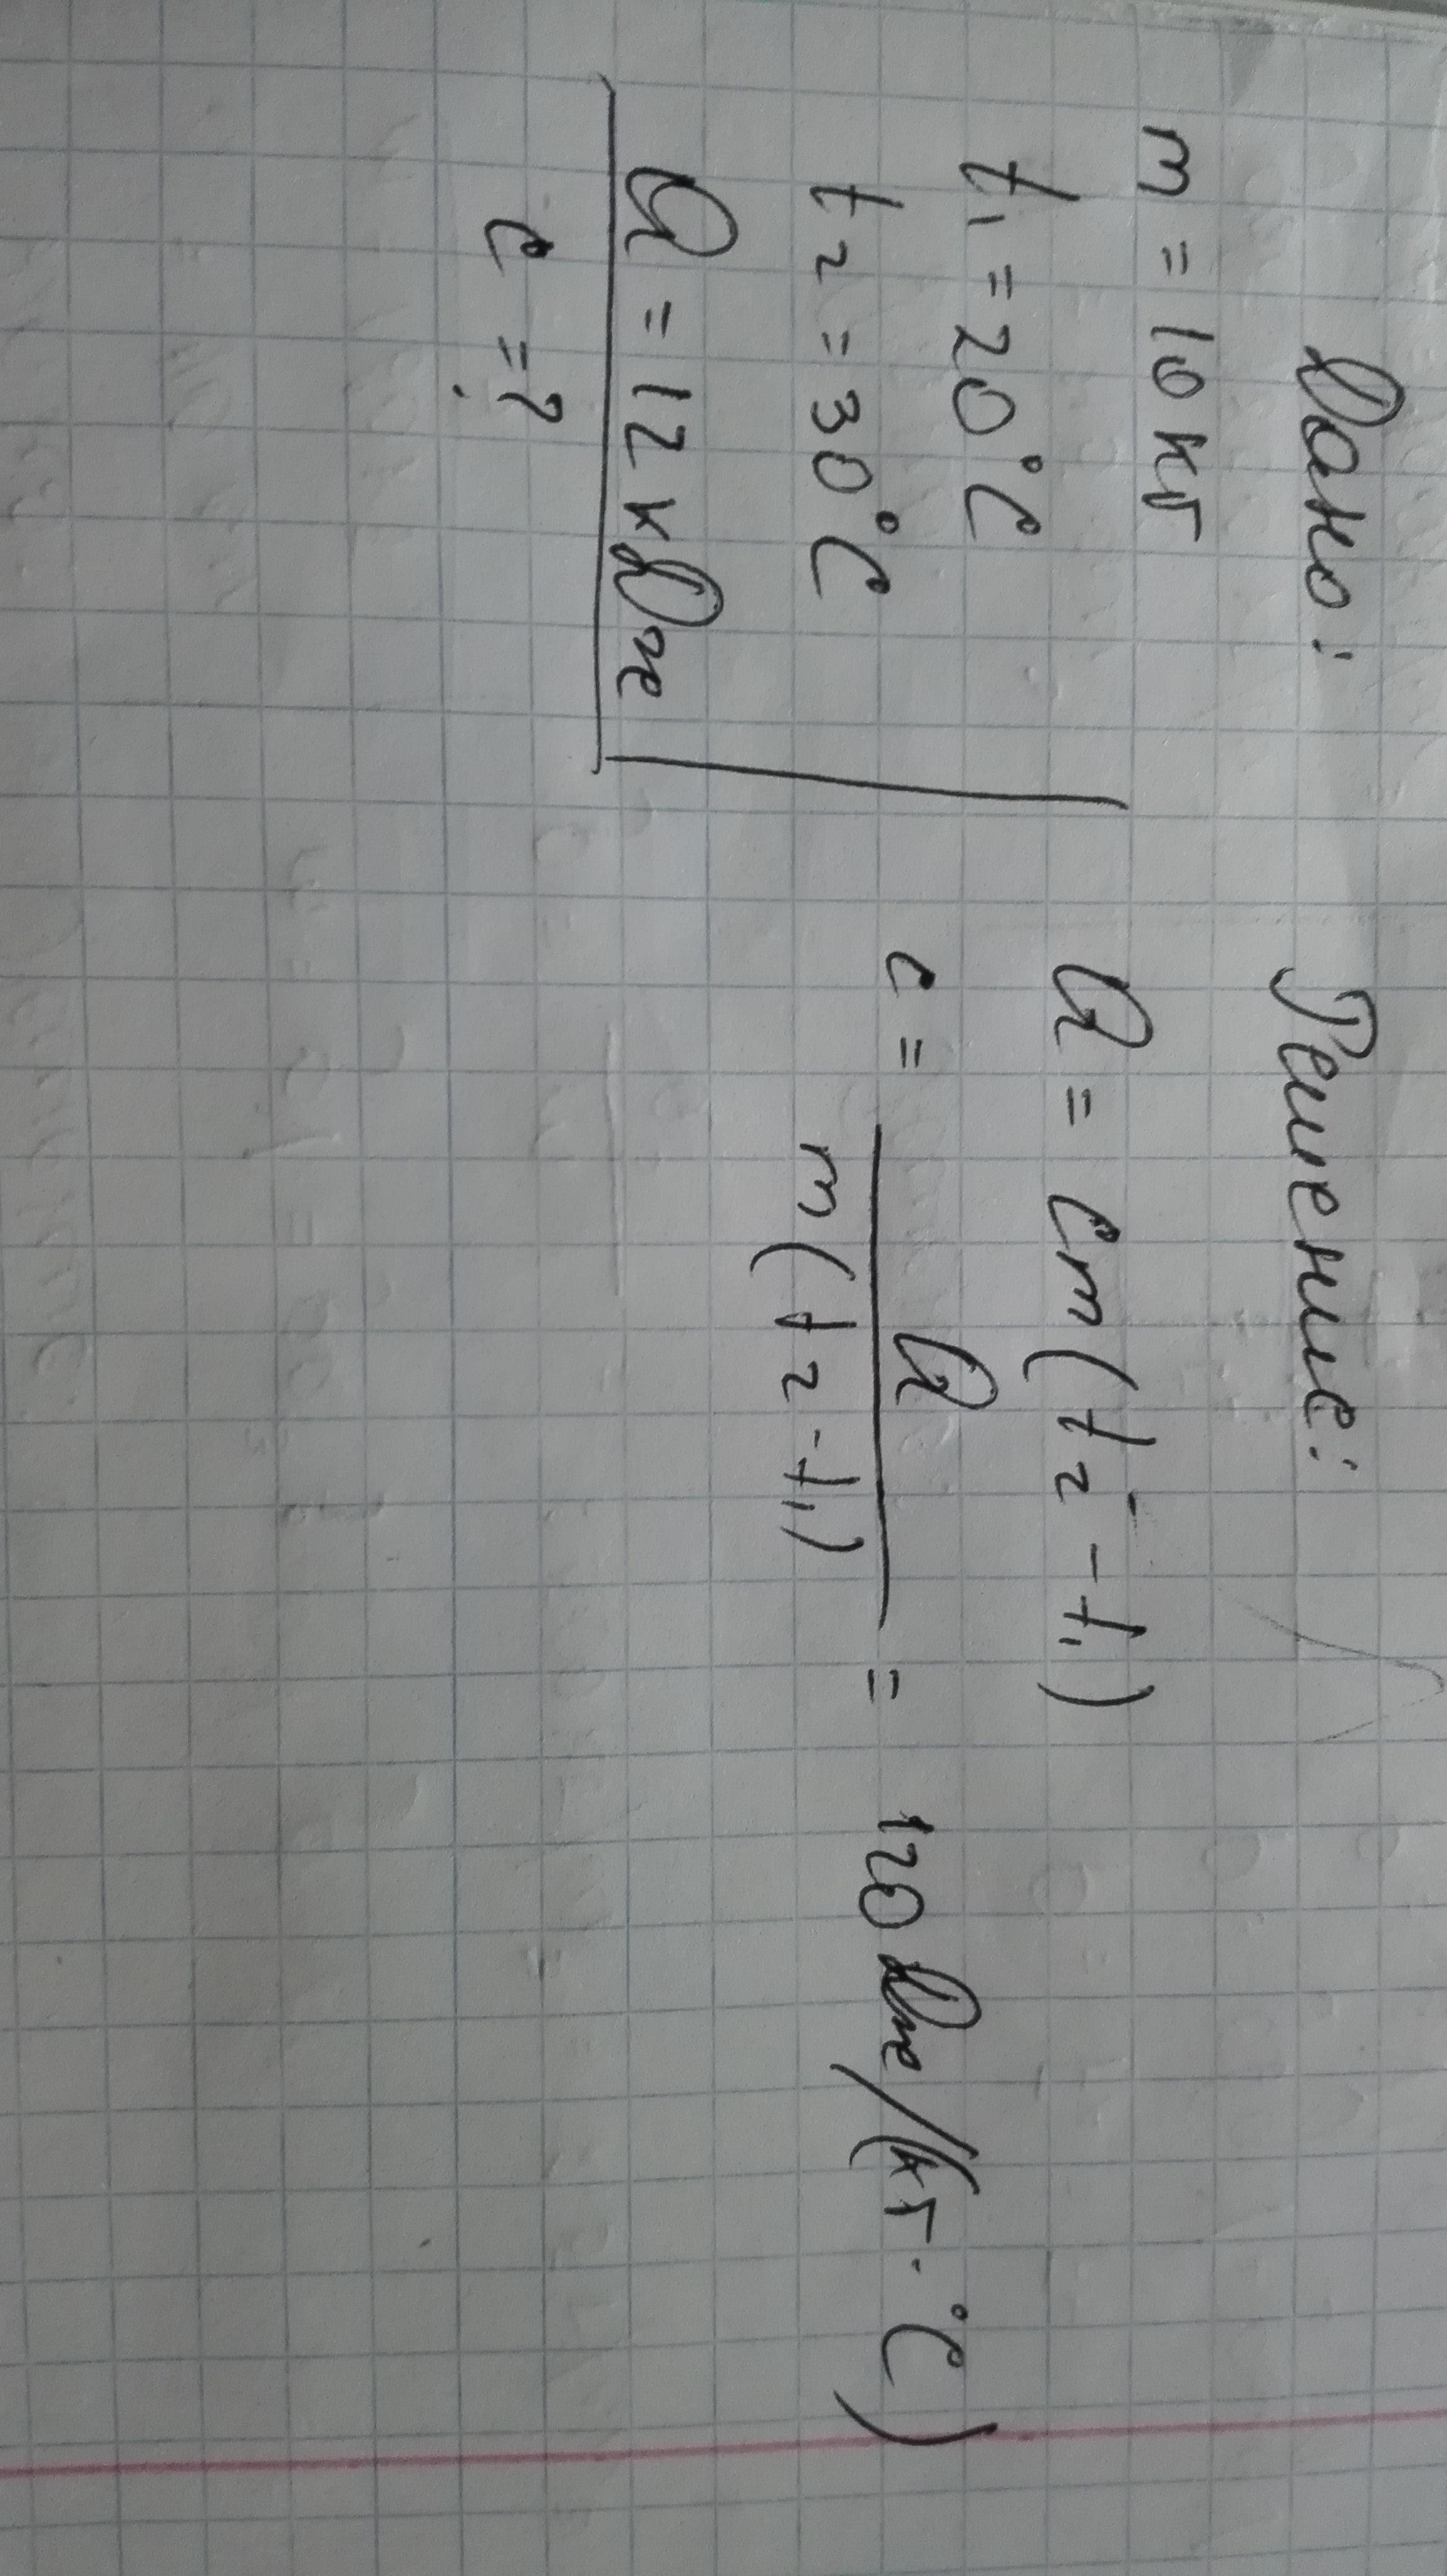 Дано:
m = 10 кг
t₁ = 20°C
t₂ = 30°C
Q = 12 кДж
c = ?
Решение:
Q = cm(t₂ - t₁)
c = Q / m(t₂ - t₁) = 120 Дж/(кг·°C)